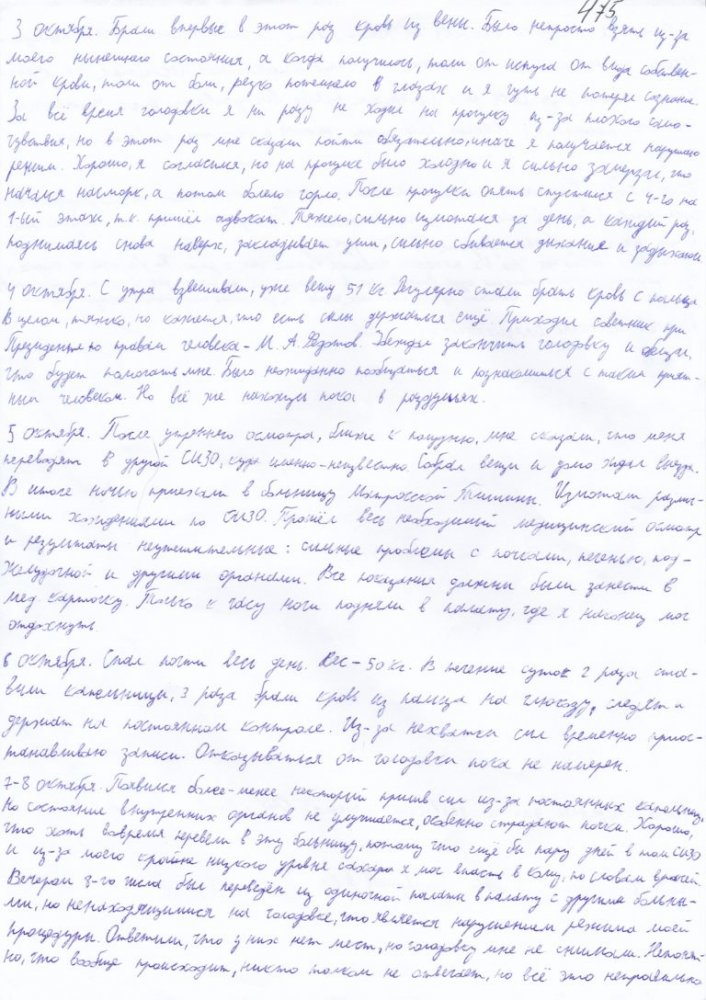 475
3 октября. Брали впервые в этот раз кровь из вены. Было непросто взять из-за
моего нынешнего состояния, а когда получилось, толи от испуга от вида собствен-
ной крови, толи от боли, резко потемнело в глазах и я чуть не потерял сознание.
За всё время голодовки я ни разу не ходил на прогулку из-за плохого само-
чувствия, но в этот раз мне сказали пойти обязательно, иначе я получается нарушаю
режим. Хорошо, я согласился, но на прогулке было холодно и я сильно замерзал, что
начался насморк, а потом болело горло. После прогулки опять спустился с 4-го на
1-ый этаж, т.к. пришёл адвокат. Тяжело, сильно измотался за день, а каждый раз,
поднимаясь снова наверх, закладывает уши, сильно сбивается дыхание и задыхаюсь
4 октября. С утра взвешивали, уже вешу 51 кг. Регулярно стали брать кровь с пальца
В целом, тяжко, но кажется, что есть силы держаться ещё. Приходил советник при
Президенте по правам человека - М. А. Федотов. Убеждал закончить голодовку и обещал,
что будет помогать мне. Было неожиданно пообщаться и познакомиться с таким прият-
ным человеком. Но всё же нахожусь пока в раздумьях.
5 октября. После утреннего осмотра, ближе к полудню, мне сказали, что меня
переводят в другой СИЗО, куда именно - неизвестно. Собрал вещи и долго ждал выезда.
В итоге ночью приехали в больницу Матросской Тишины. Измотали различ-
ными хождениями по СИЗО. Прошёл весь необходимый медицинский осмотр
и результаты неутешительные: сильные проблемы с почками, печенью, под-
желудочной и другими органами. Все показания должны были занести в
мед карточку. Только к часу ночи подняли в палату, где я наконец мог
отдохнуть
6 октября. Спал почти весь день. Вес - 50 кг. В течение суток 2 раза ста-
вили капельницы, 3 раза брали кровь из пальца на глюкозу, следят и
держат на постоянном контроле. Из-за нехватки сил временно приос-
танавливаю записи. Отказываться от голодовки пока не намерен.
7-8 октября. Появился более-менее некоторый прилив сил из-за постоянных капельниц,
Но состояние внутренних органов не улучшается, особенно страдают почки. Хорошо,
что хоть вовремя перевели в эту больницу, потому что ещё бы пару дней в том СИЗО
и из-за моего крайне низкого уровня сахара я мог впасть в кому, по словам врачей.
Вечером числа был переведён из одиночной палаты в палату с другими больны-
ми, но не находящимися на голодовке, что является нарушением режима моей
процедуры. Ответили, что у них нет мест, но голодовку мне не снимали. Непонят-
но, что вообще происходит, никто толком не отвечает, но всё это неправильно